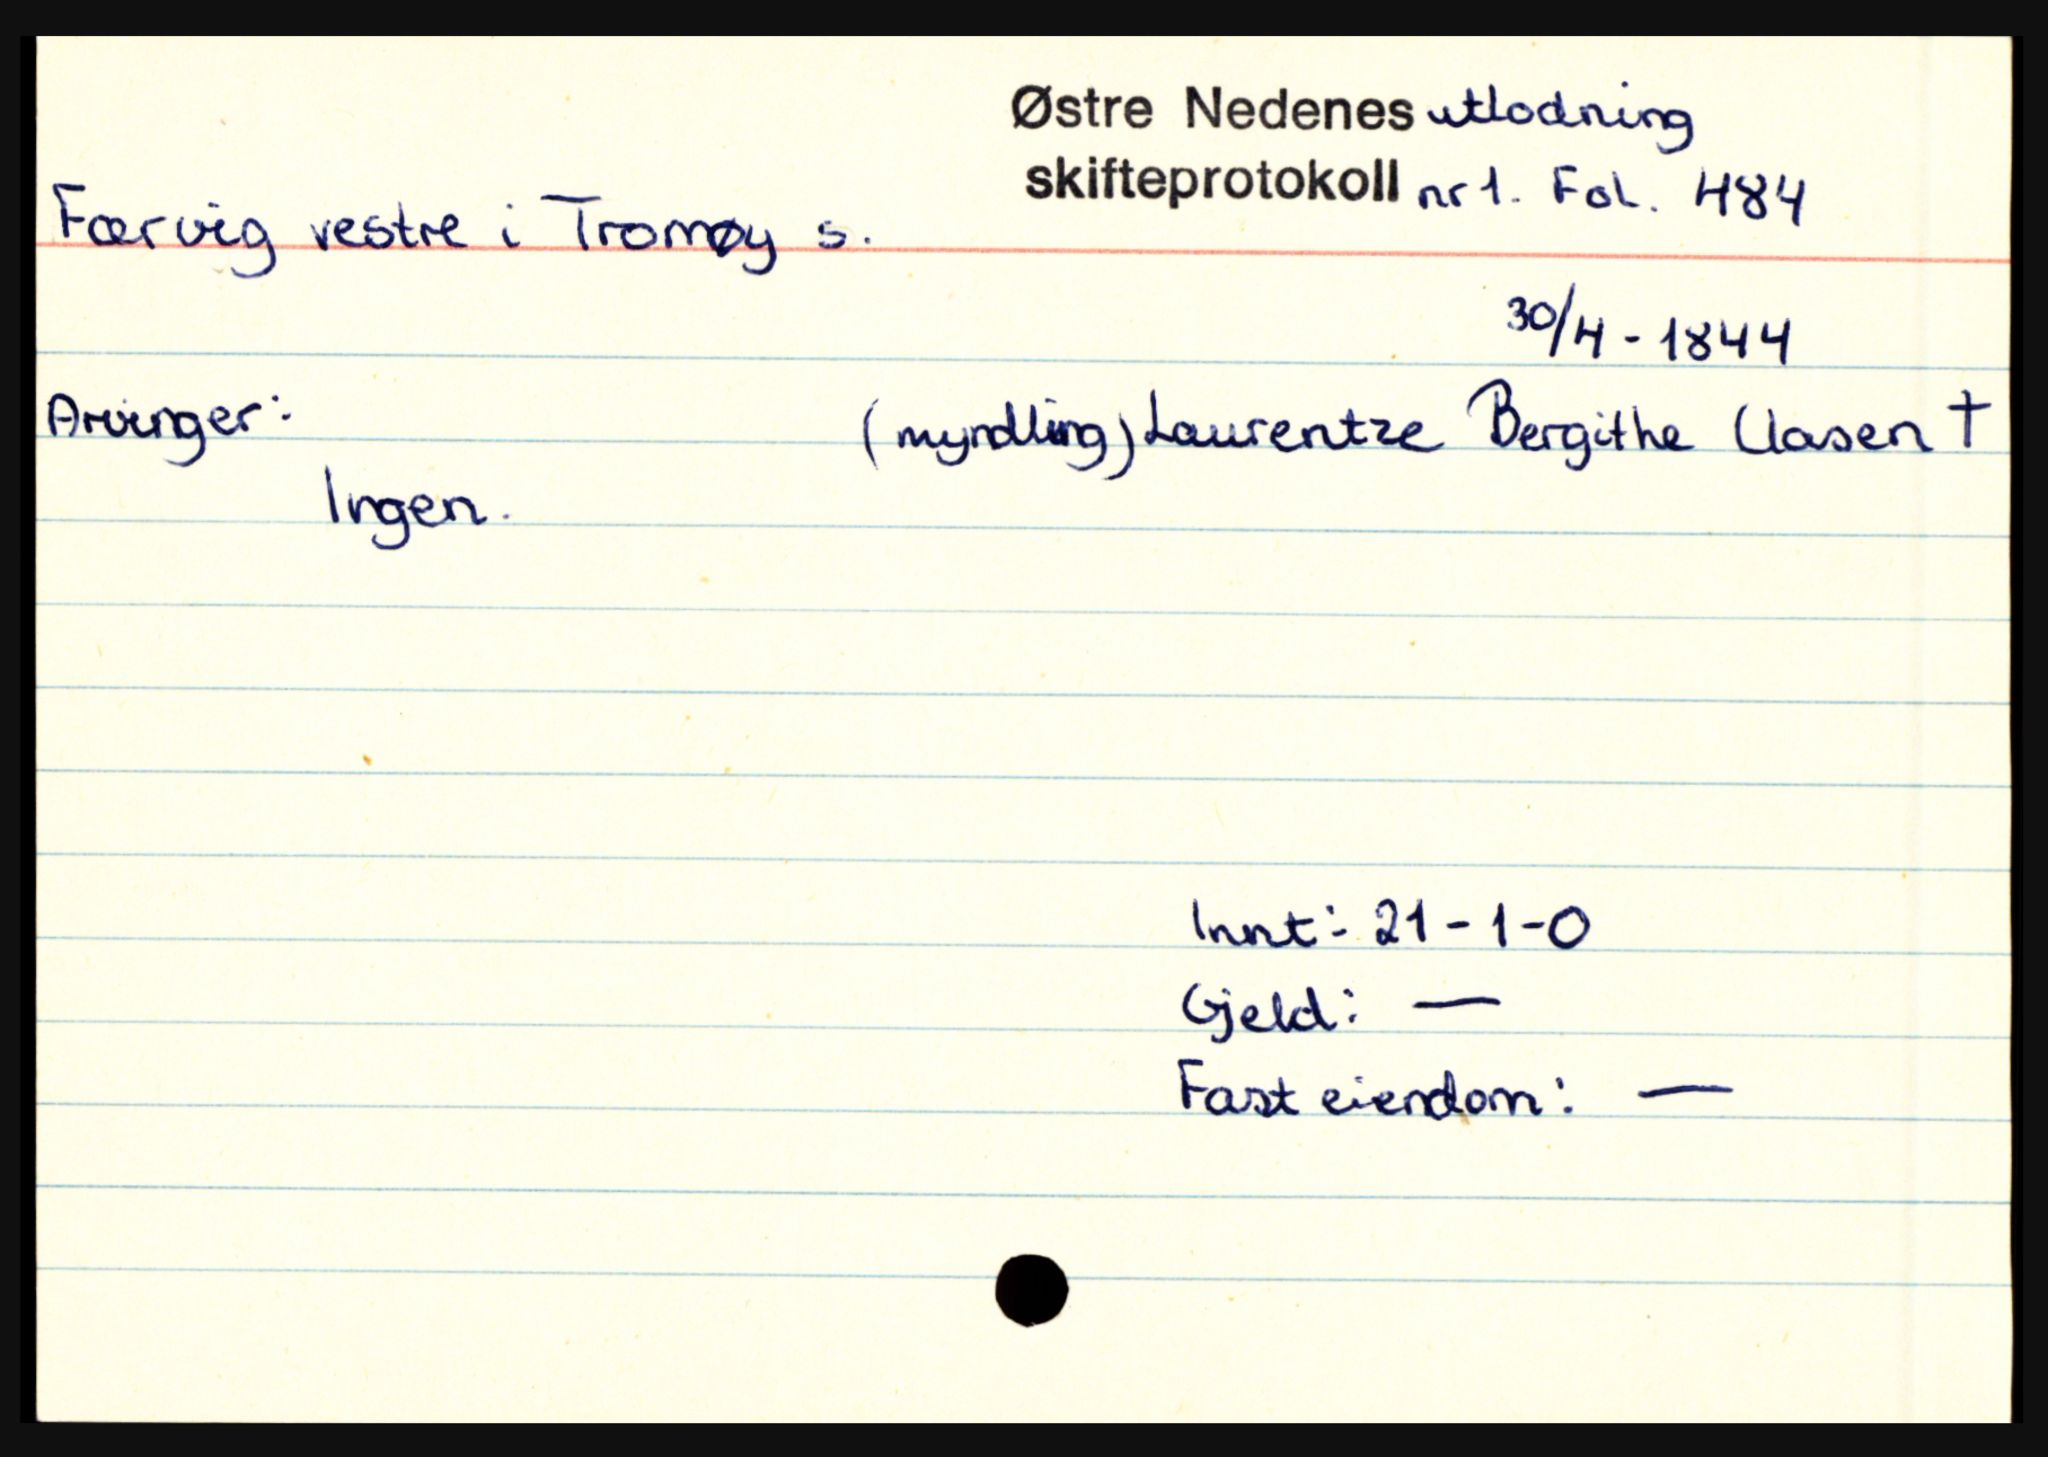 Østre Nedenes utlodning
skifteprotokoll nr 1. Fol. 484
Færvig vestre i Tromøy s.
30/4 - 1844
Arvinger: (myndling) Laurentze Bergithe Clasen †
Ingen.
Innt: 21 - 1 - 0
Gjeld: —
Fast eiendom: —